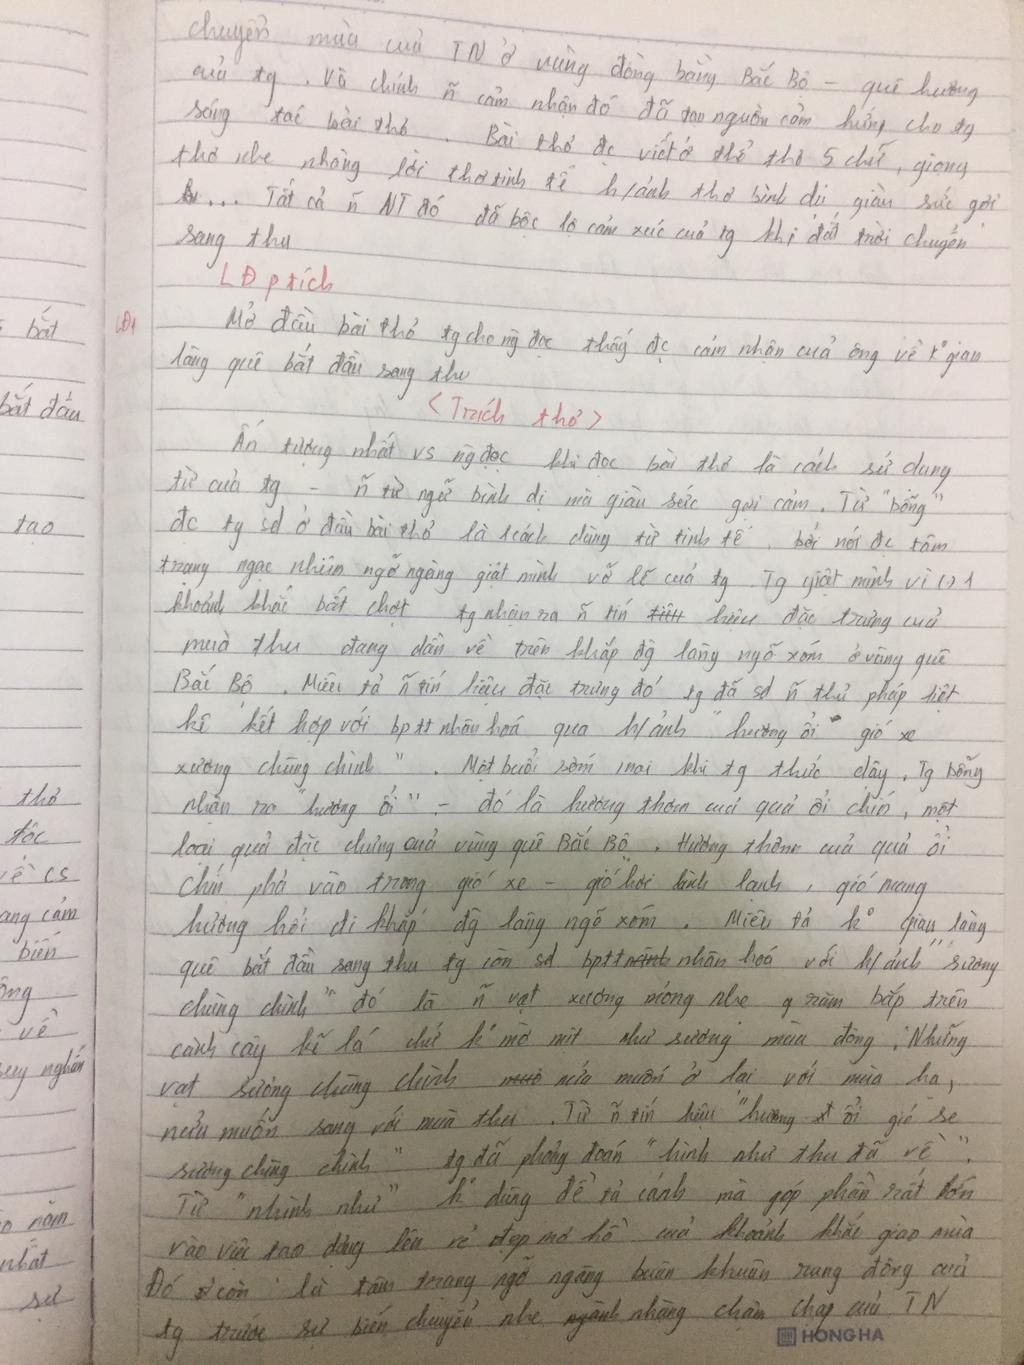 chuyển mùa của TN ở vùng đồng bằng Bắc Bộ – quê hương
của tg. Và chính ñ cảm nhận đó đã tạo nguồn cảm hứng cho tg
sáng tác bài thơ. Bài thơ đc viết ở thể thơ 5 chữ, giọng
thơ nhẹ nhàng lời thơ tinh tế h/ảnh thơ bình dị giàu sức gợi
... Tất cả ñ NT đó đã bộc lộ cảm xúc của tg khi đất trời chuyển
sang thu
LĐ ptích
LĐ1
Mở đầu bài thơ tg cho ng đọc thấy đc cảm nhận của ông về k° gian
làng quê bắt đầu sang thu
<Trích thơ>
Ấn tượng nhất vs ng đọc khi đọc bài thơ là cách sử dụng
từ của tg – ñ từ ngữ bình dị mà giàu sức gợi cảm. Từ "bỗng"
đc tg sd ở đầu bài thơ là 1 cách dùng từ tinh tế. bởi nói đc tâm
trạng ngạc nhiên ngỡ ngàng giật mình vỡ lẽ của tg. Tg giật mình vì 1
khoảnh khắc bất chợt tg nhận ra ñ tín hiệu đặc trưng của
mùa thu đang dần về trên khắp đg làng ngõ xóm ở vùng quê
Bắc Bộ. Miêu tả ñ tín hiệu đặc trưng đó tg đã sd ñ thủ pháp liệt
kê kết hợp với bptt nhân hoá qua h/ảnh "hương ổi" gió xe
xương chùng chình". Một buổi sớm mai khi tg thức dậy, Tg bỗng
nhận ra "hương ổi" – đó là hương thơm của quả ổi chín, một
loại quả đặc chưng của vùng quê Bắc Bộ. Hương thơm của quả ổi
chín phả vào trong gió xe – gió hơi lành lạnh, gió mang
hương hơi đi khắp đg làng ngõ xóm. Miêu tả k° gian làng
quê bắt đầu sang thu tg còn sd bptt nhân hoá với h/ảnh "sương
chùng chình" đó là ñ vạt xương mỏng nhẹ g răm bắp trên
cành cây kẽ lá chứ k° mờ mịt như sương mùa đông. Những
vạt sương chùng chình nửa muốn ở lại với mùa hạ,
nửa muốn sang với mùa thu. Từ ñ tín hiệu "hương ổi gió se
sương chùng chình" tg đã phỏng đoán "hình như thu đã về".
Từ "nhình như" k° dùng để tả cảnh mà góp phần rất lớn
vào việc tạo dựng lên vẻ đẹp mơ hồ của khoảnh khắc giao mùa
Đó còn là tâm trạng ngỡ ngàng buân khuân rung động của
tg trước sự biến chuyển nhẹ nhàng chậm chạp của TN
HONG HA
bất
bắt đầu
tạo
thơ
tốc
về cs
ang cảm
biến
ông
về
suy nghẫn
năm
nhất
sự